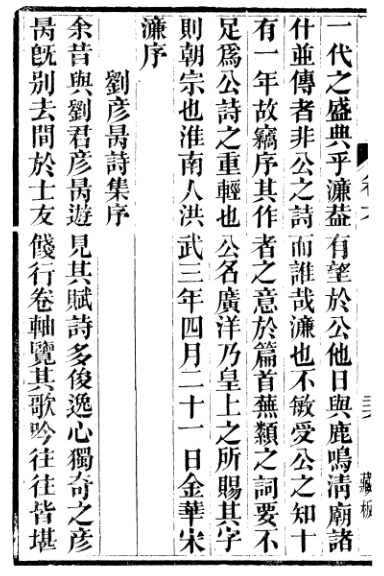 一代之盛典乎濂葢有望於公他日與鹿鳴清廟諸
什並傳者非公之詩而誰哉濂也不敏受公之知十
有一年故竊序其作者之意於篇首蕪纇之詞要不
足爲公詩之重輕也公名廣洋乃皇上之所賜其字
則朝宗也淮南人洪武三年四月二十一日金華宋
濂序
劉彦昺詩集序
余昔與劉君彦昺遊見其賦詩多俊逸心獨奇之彦
昺旣別去間於士友餞行卷軸覽其歌吟往往皆堪
藏板